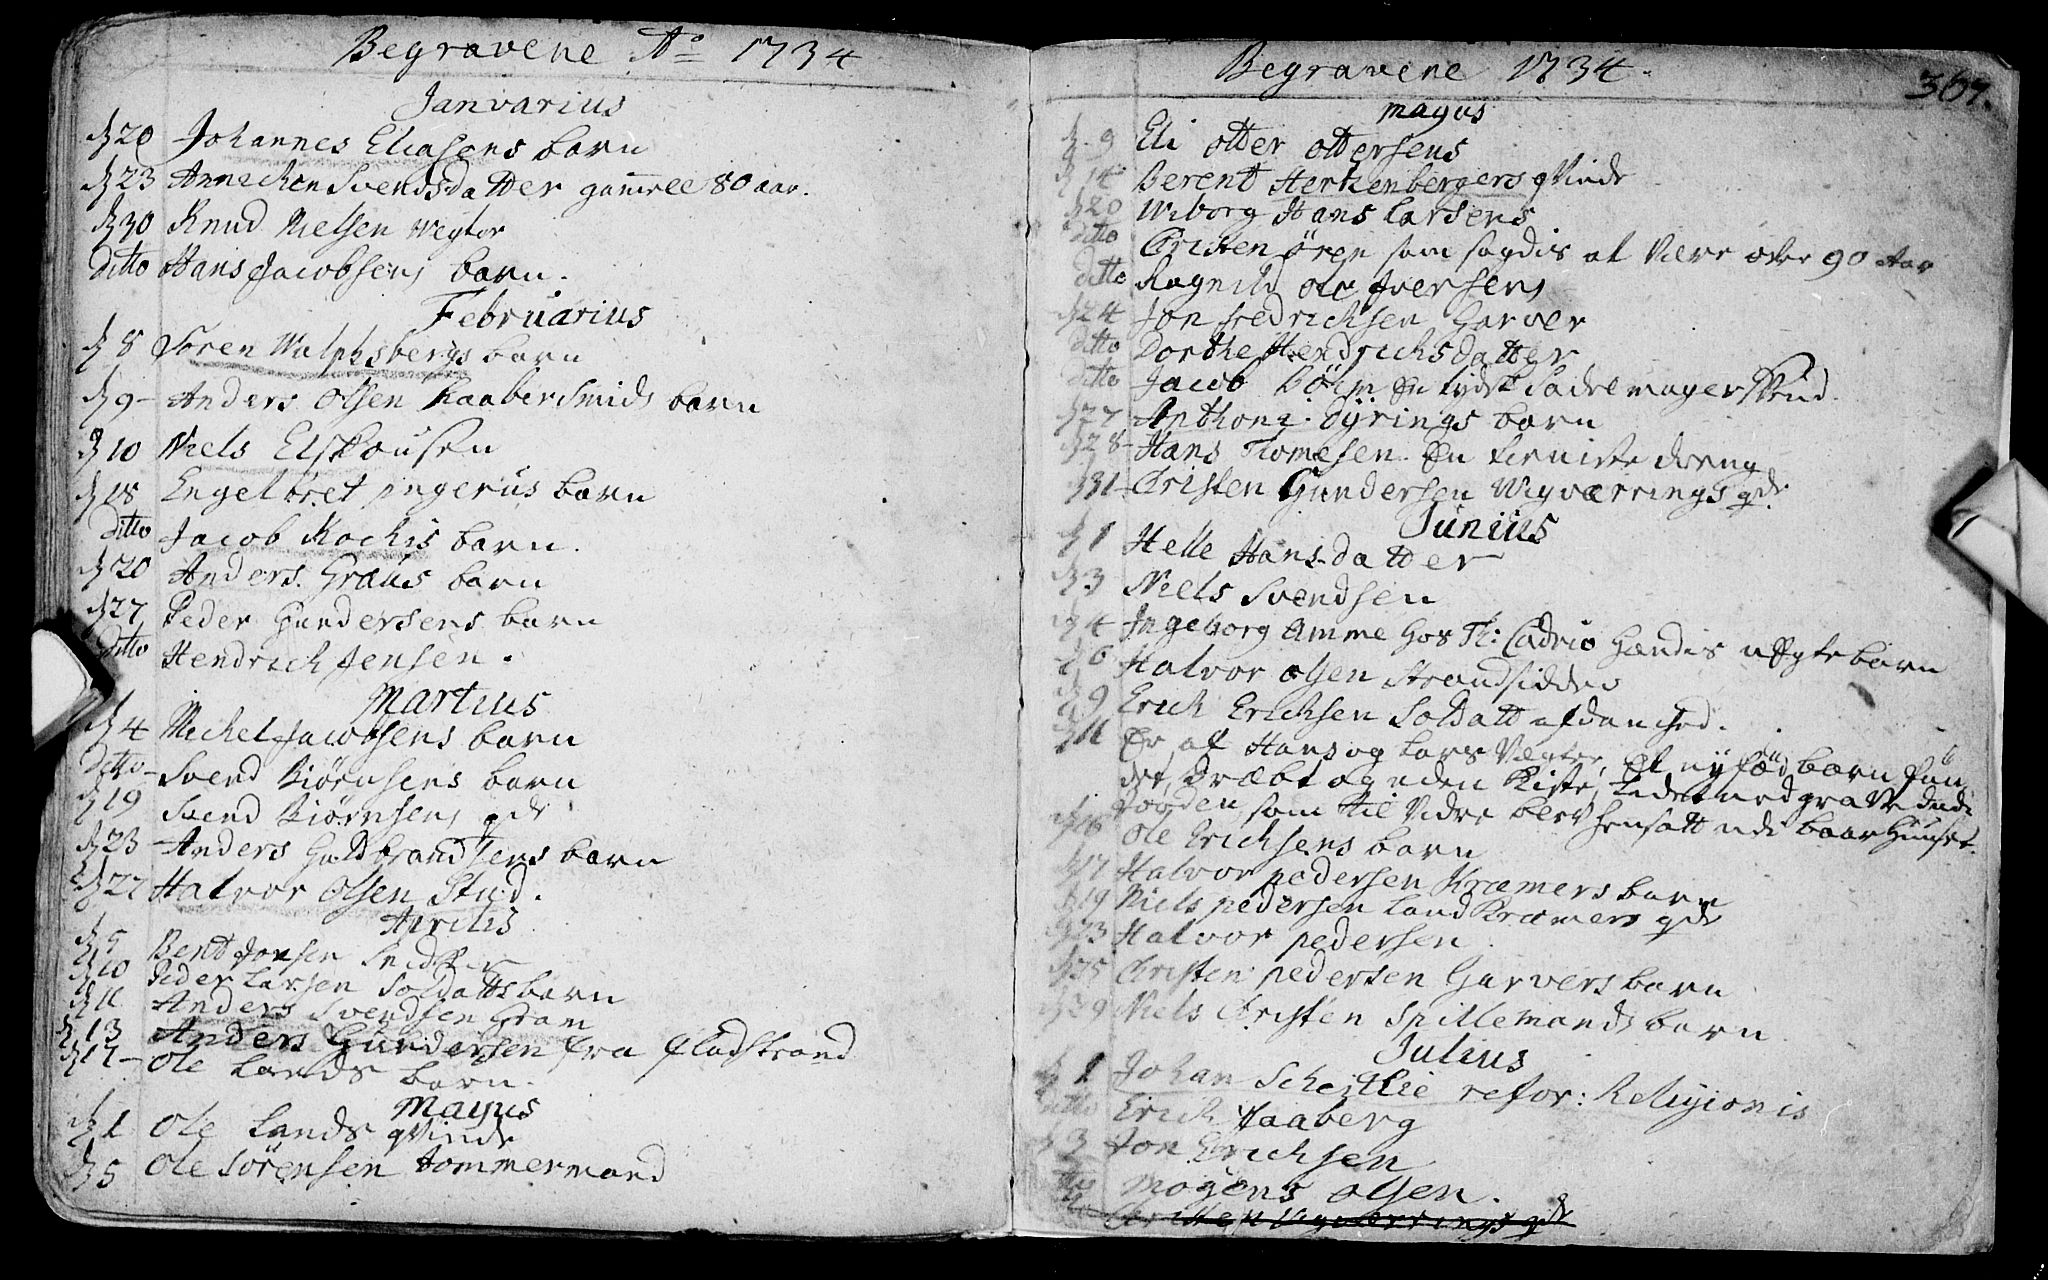 Begravene Aō 1734
Janvarius
d 20 Johannes Eliasens barn
d 23 Annichen Svendsdatter gammel 80 aar.
d 30 Knud Nielsen Wegtor
ditto Hans Jacobsens barn.
Februarius
d 8 Søren Wulphsbergs barn
d 9 Anders Olsen Kaabersmids barn
d 10 Niels Elskousen
d 18 Engelbret Ingerus barn
ditto Jacob Kochis barn.
d 20 Anders Graus barn
d 27 Peder Gundersens barn
ditto Hendrich Jensen.
Martius
d 4 Michel Jacobsens barn
ditto Svend Biørnsens barn
d 19 Svend Biørnsens qde
d 23 Anders Guldbrandsens barn
d 27 Halvor Olsen Stud.
Aprilis
d 5 Bent Jonsen Snidker
d 10 Peder Larsen Soldatts barn
d 11 Anders Svendsen Gram
d 13 Anders Gundersen fra fladstrand
d 17 Ole Lands barn.
Mayus
d 1 Ole Lands qvinde
d 5 Ole Sørensen Tommermand
Begravene 1734.
367.
mayus
d 9 Eli otter ottersens
d 14 Berent Hertzenbergers qvinde
d 20 Wiborg Hans Larsens
ditto Christen Ören som sagdis at være over 90 Aar
ditto Ragnild ole Iversens
d 24 Jon Fredrichsen Garver
ditto Dorthe Hendrichsdatter
ditto Jacob Böhm En tydsk Sadelmager Svend.
d 27 Anthoni Dyrings barn
d 28 Hans Tomesen En dreng
d 31 Cristen Gundersen Wigværrings qde.
Junius
d 1 Helle Hansdatter
d 3 Niels Svendsen
d 4 Ingeborg Amme hos Th: Cadrio hendis uEgte barn
d 6 Halvor olsen Strandsidder
d 9 Erich Erichsen Soldatt afdanched.
d 11 Er af Hans og Lars Vegter, Et nyfød barn fun
det, dræbt og uden Kiste, nedgravt udi
Jorden, som til Vidre blev hensatt udi baarhuuset.
d 16 Ole Erichsens barn
d 17 Halvor pedersen Kræmers barn
d 19 Niels pedersen Land Kræmers qde
d 23 Halvor pedersen.
d 25 Christen pedersen Garvers barn
d 29 Niels Cristen Spillemands barn
Julius
d 1 Johan Scheitlie refor: Religionis
ditto Erich Faaberg
d 3 Jon Erichsen
ditto Mogens olsen.
Wigværrings qde